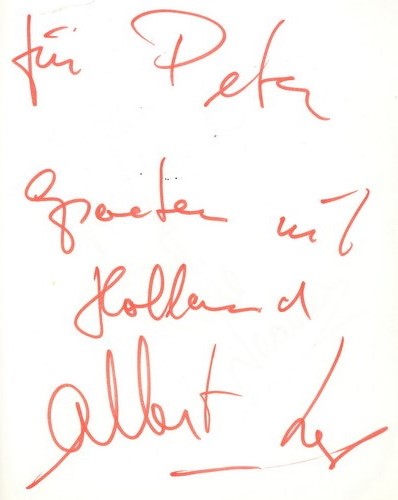 für Peter
Groeten uit
Holland
Albert